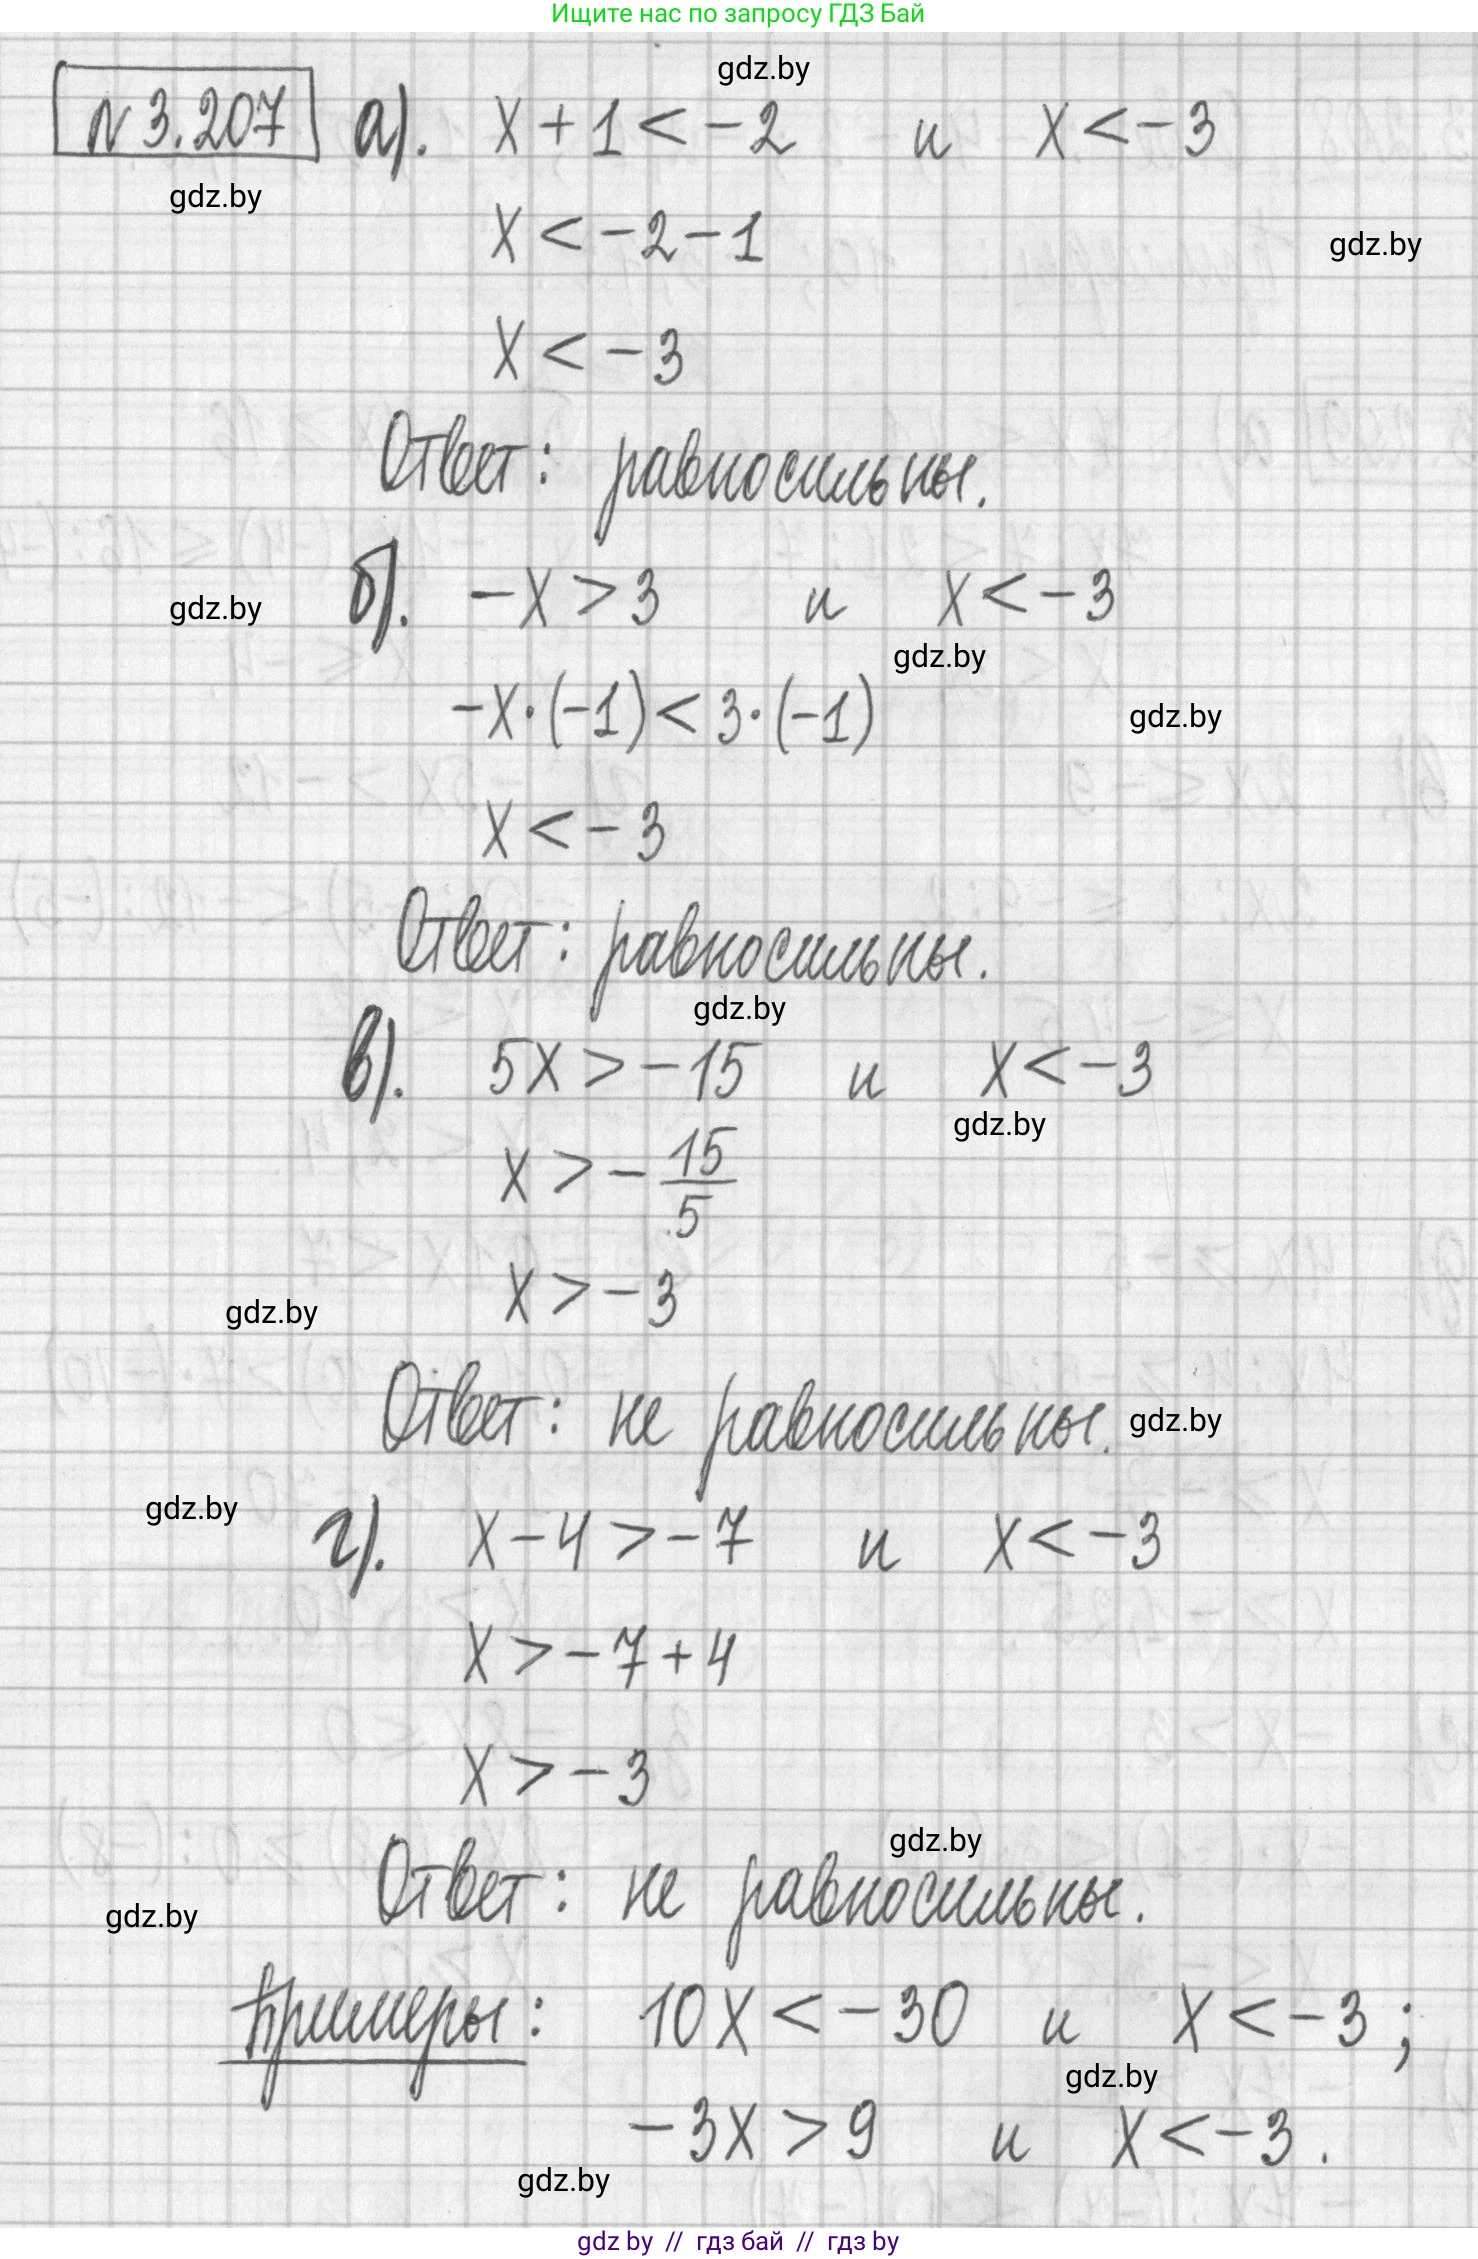 Ищите нас по запросу ГДЗ Бай
gdz.by
№3.207 а). x + 1 < -2 и x < -3
gdz.by
x < -2 - 1
gdz.by
x < -3
Ответ: равносильны.
б). -x > 3 и x < -3
gdz.by
gdz.by
-x·(-1) < 3·(-1)
gdz.by
x < -3
Ответ: равносильны.
gdz.by
в). 5x > -15 и x < -3
gdz.by
x > - 15/5
x > -3
gdz.by
Ответ: не равносильны.
gdz.by
gdz.by
г). x - 4 > -7 и x < -3
x > -7 + 4
x > -3
gdz.by
Ответ: не равносильны.
gdz.by
Примеры: 10x < -30 и x < -3;
gdz.by
-3x > 9 и x < -3.
gdz.by
gdz by // гдз бай // гдз by